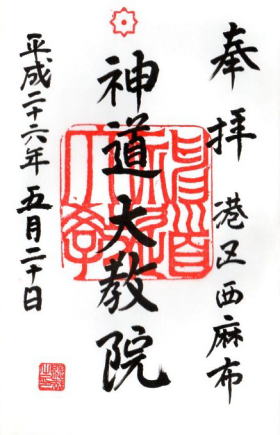 奉拝 港区西麻布
神道大教院
平成二十六年五月二十日